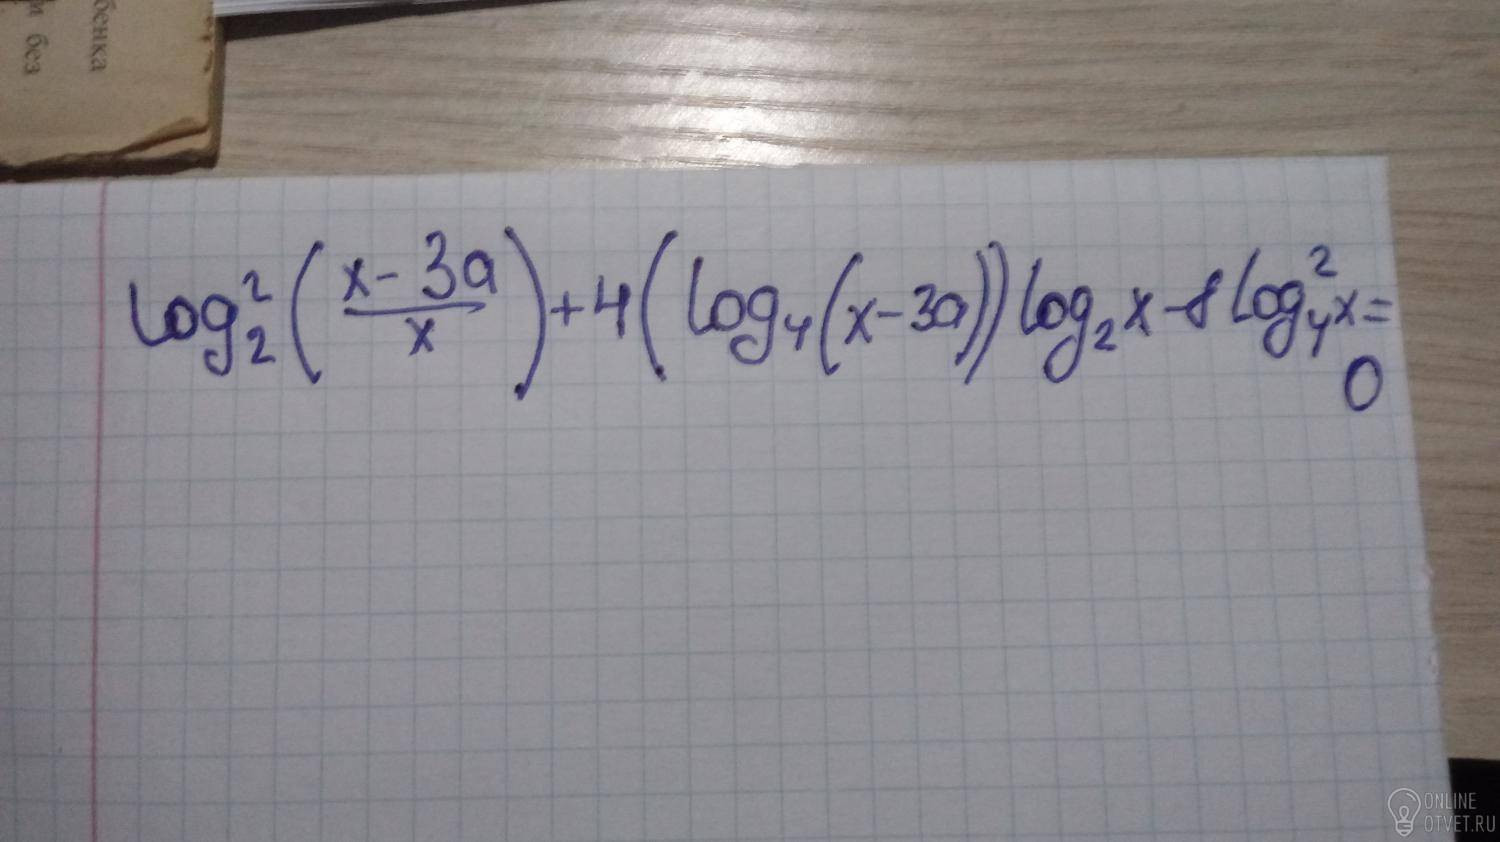 бенка
и без
log₂²((x-3a)/x)+4(log₄(x-3a))log₂x-8log₄²x=
0
ONLINE
OTVET.RU